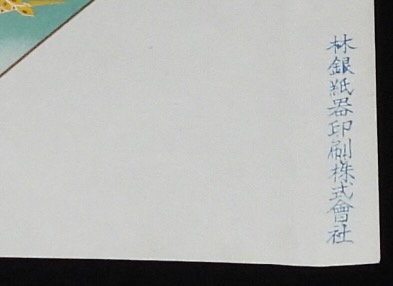 林銀紙器印刷株式會社